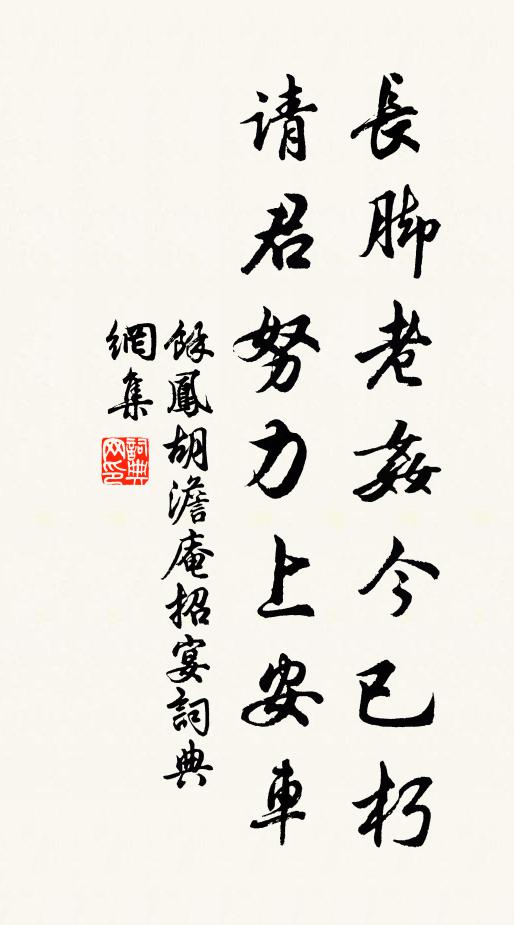 長脚老姦今已朽
请君努力上安車
餘鳳胡澹庵招宴詞典
網集
詞典網印